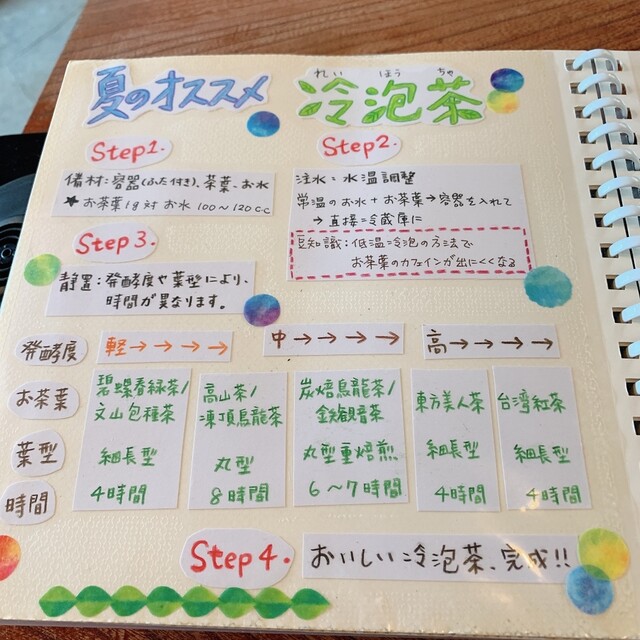 夏のオススメ
れい ほう ちゃ
冷泡茶
Step1.
備材:容器(ふた付き)、茶葉、お水
★お茶葉1g対 お水 100~120c.c
Step2.
注水:水温調整
常温のお水+お茶葉→容器を入れて
→直接冷蔵庫に
豆知識:低温冷泡の方法で
お茶葉のカフェインが出にくくなる
Step3.
静置:発酵度や葉型により、
時間が異なります。
発酵度 軽→→→→ 中→→→→ 高→→→→
お茶葉
碧螺春緑茶/
文山包種茶
高山茶/
凍頂烏龍茶
炭焙烏龍茶/
鉄観音茶
東方美人茶
台湾紅茶
葉型 細長型 丸型 丸型重焙煎 細長型 細長型
時間 4時間 8時間 6~7時間 4時間 4時間
Step4. おいしい冷泡茶、完成!!